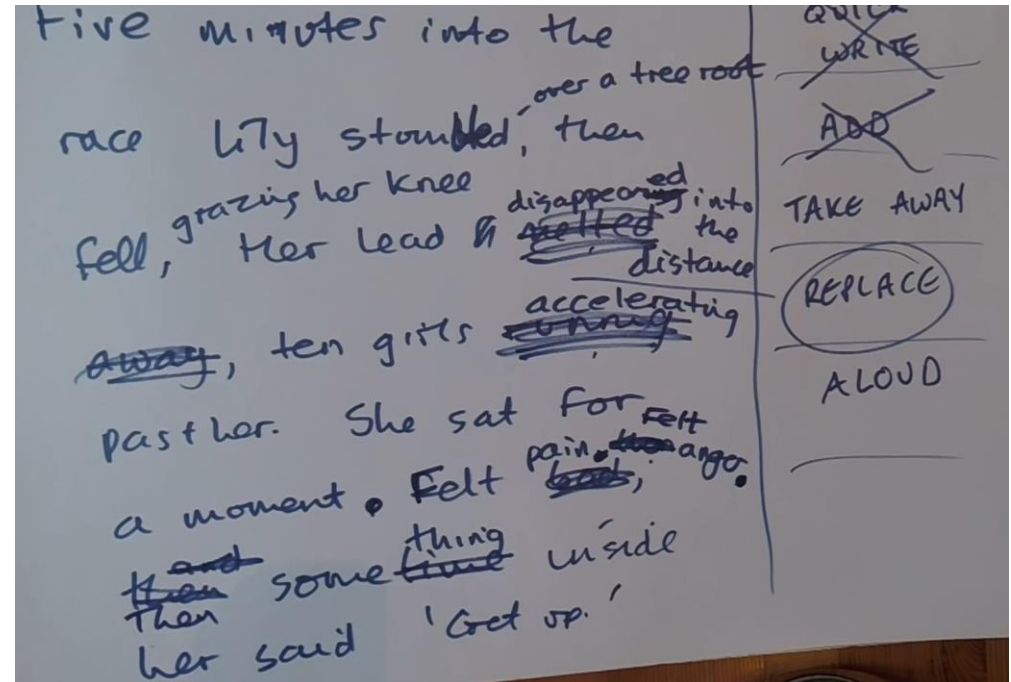 Five minutes into the
over a tree root
race Lily stumbled, then
grazing her knee
fell, Her lead disappeared into
the
distance
away, ten girls accelerating
past her. She sat for
a moment. Felt pain. Felt anger.
and
then something inside
Then
her said 'Get up.'
QUICK
WRITE
ADD
TAKE AWAY
REPLACE
ALOUD